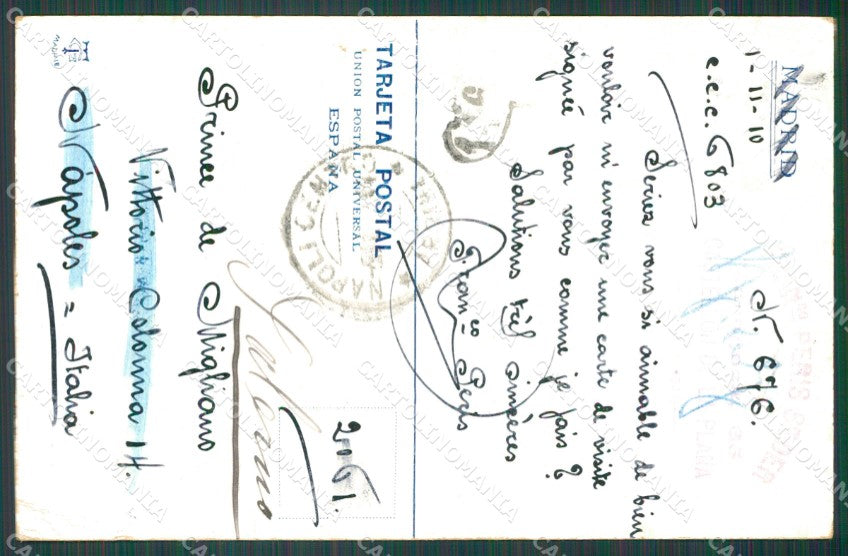 MADRID
1-11-10
c.c.c. 6803
N. 676.
Seriez vous si aimable de bien
vouloir m'envoyer une carte de visite
signée par vous comme je fais?
Salutions très sincères
TARJETA POSTAL
UNION POSTAL UNIVERSAL
ESPAÑA
NAPOLI
2061.
Prince de Migliano
Vittorio Colonna 14.
Nápoles = Italia
CARTOLINOMANIA